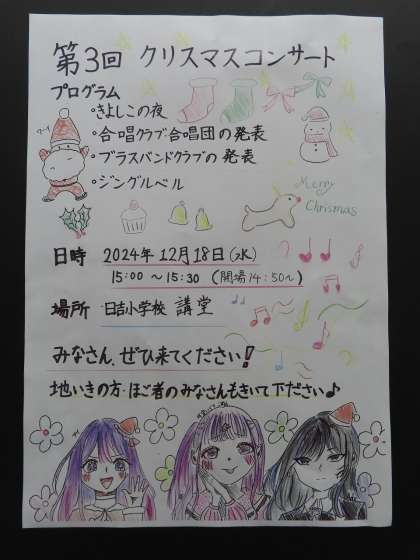 第3回 クリスマスコンサート
プログラム
・きよしこの夜
・合唱クラブ合唱団の発表
・ブラスバンドクラブの発表
・ジングルベル
Merry
Chrismas
日時 2024年12月18日(水)
15:00～15:30 (開場14:50～)
場所 日吉小学校 講堂
みなさん、ぜひ来てください!
地いきの方・ほご者のみなさんもきいて下ださい♪